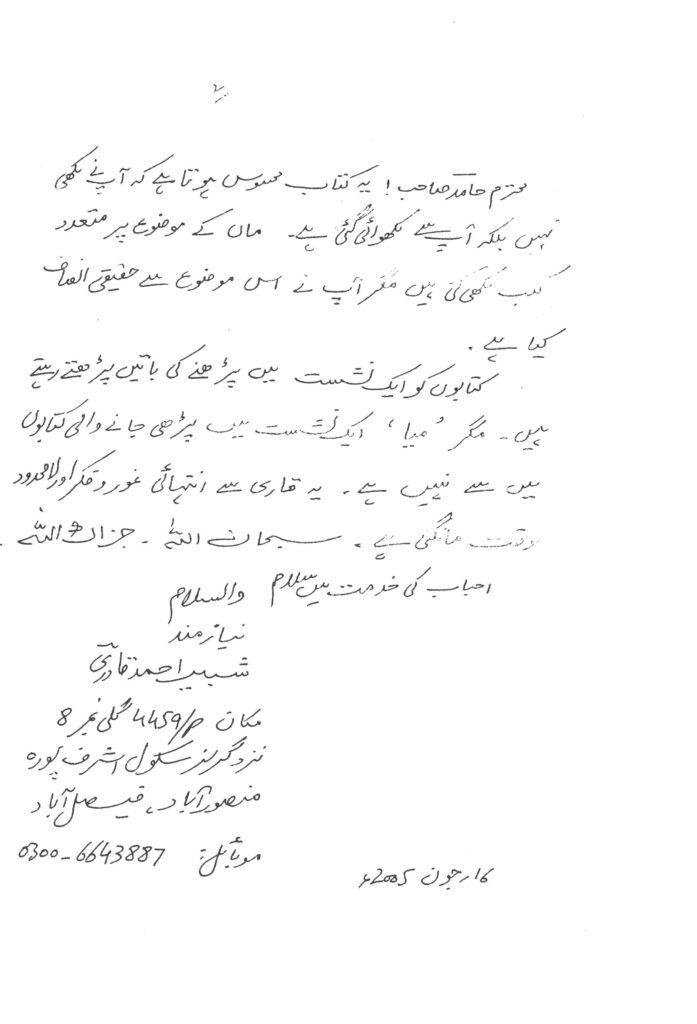 ۲
محترم حامد صاحب! یہ کتاب محسوس ہوتا ہے کہ آپ نے لکھی
نہیں بلکہ آپ سے لکھوائی گئی ہے۔ ماں کے موضوع پر متعدد
کتب لکھی گئی ہیں مگر آپ نے اس موضوع سے حقیقی انصاف
کیا ہے۔
کتابوں کو ایک نشست میں پڑھنے کی باتیں پڑھتے رہتے
ہیں۔ مگر 'میا' ایک نشست میں پڑھی جانے والی کتابوں
میں سے نہیں ہے۔ یہ قاری سے انتہائی غور و فکر اور لامحدود
وقت مانگتی ہے۔ سبحان اللہ۔ جزاک اللہ۔
احباب کی خدمت میں سلام والسلام
نیازمند
شبیر احمد قادری
مکان 4459/P گلی نمبر 8
نزد گرلز سکول اشرف پورہ
منصور آباد، فیصل آباد
موبائل: 0300-6643887
16 جون 2005ء